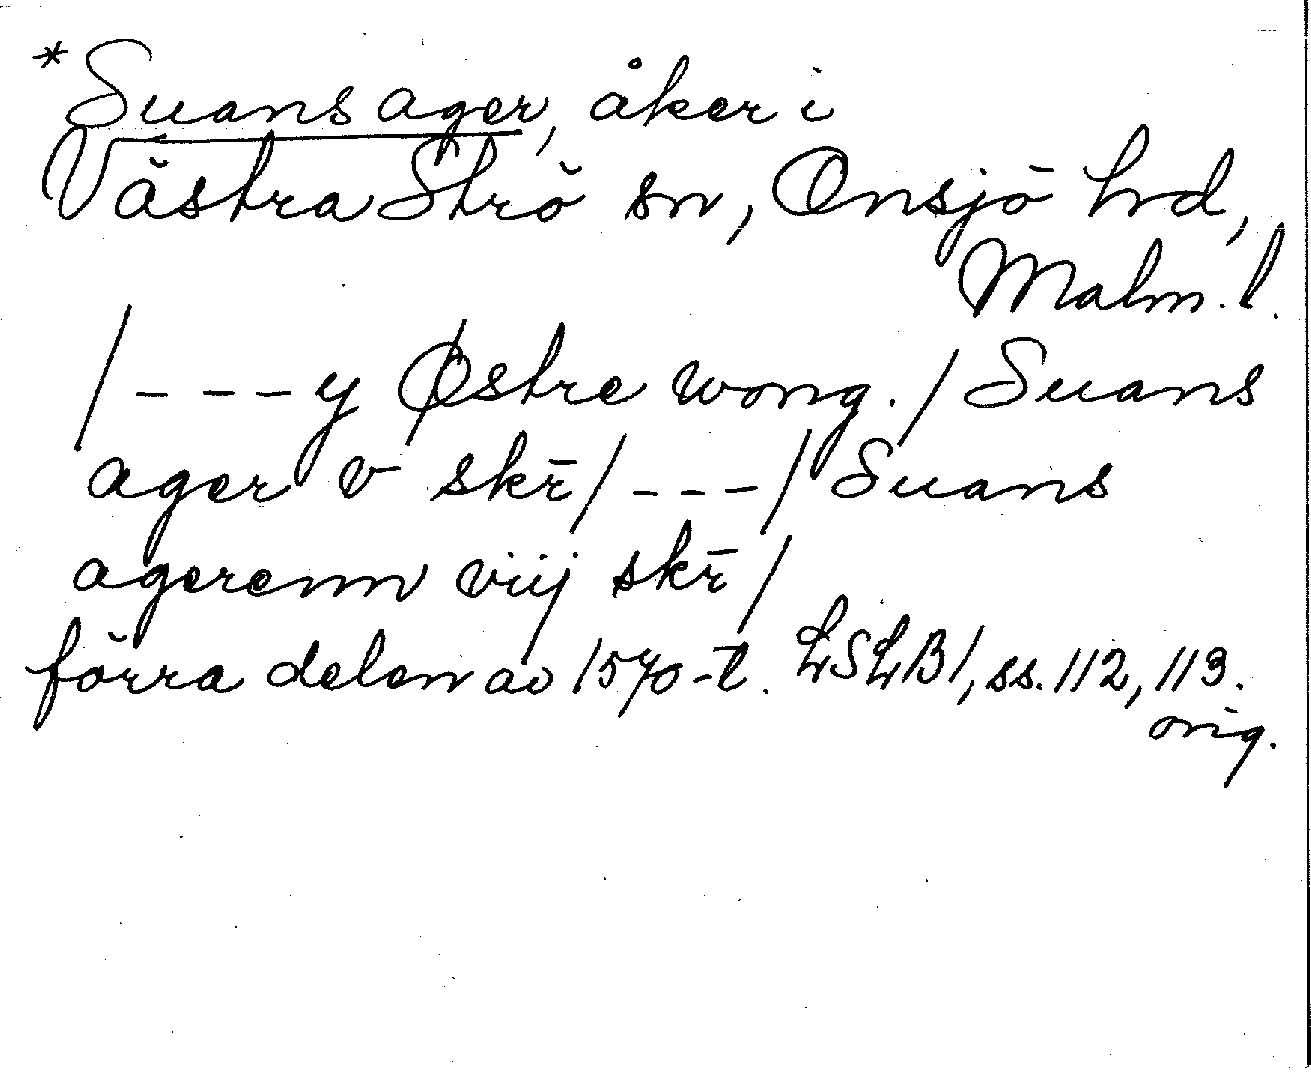 *Suans ager, åker i
Västra Strö sn, Onsjö hrd,
Malm. l.
/ - - - y Østre wong. / Suans
ager v skr̄ / - - - / Suans
agerenn viij skr̄ /
förra delen av 1570-t. LSLB1, ss. 112, 113.
orig.